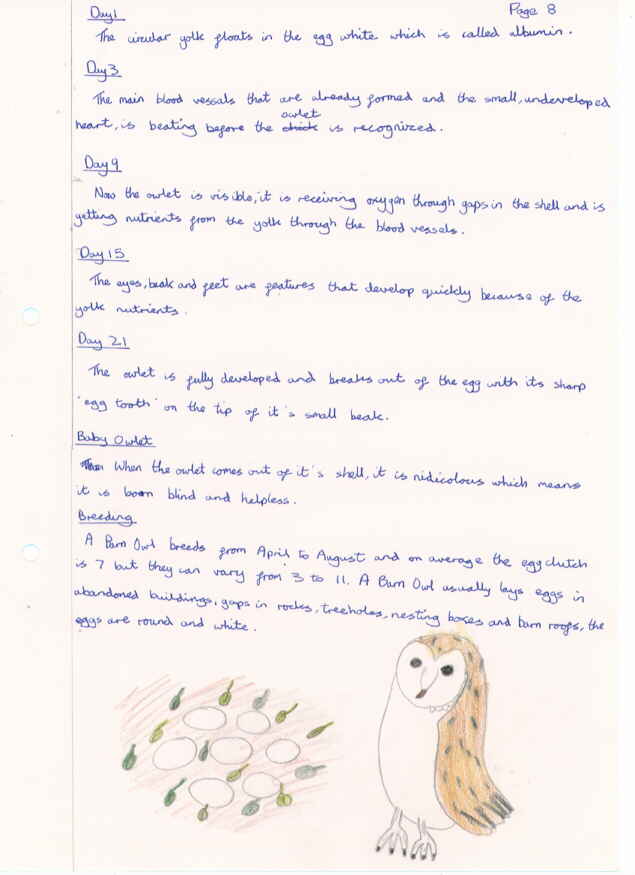 Page 8
Day 1
The circular yolk floats in the egg white which is called albumin.
Day 3
The main blood vessals that are already formed and the small, undeveloped
owlet
heart, is beating before the chick is recognized.
Day 9
Now the owlet is visible, it is receiving oxygen through gaps in the shell and is
getting nutrients from the yolk through the blood vessals.
Day 15
The eyes, beak and feet are features that develop quickly because of the
yolk nutrients.
Day 21
The owlet is fully developed and breaks out of the egg with its sharp
'egg tooth' on the tip of it's small beak.
Baby Owlet
When the owlet comes out of it's shell, it is nidicolous which means
it is born blind and helpless.
Breeding
A Barn Owl breeds from April to August and on average the egg clutch
is 7 but they can vary from 3 to 11. A Barn Owl usually lays eggs in
abandoned buildings, gaps in rocks, treeholes, nesting boxes and barn roofs, the
eggs are round and white.